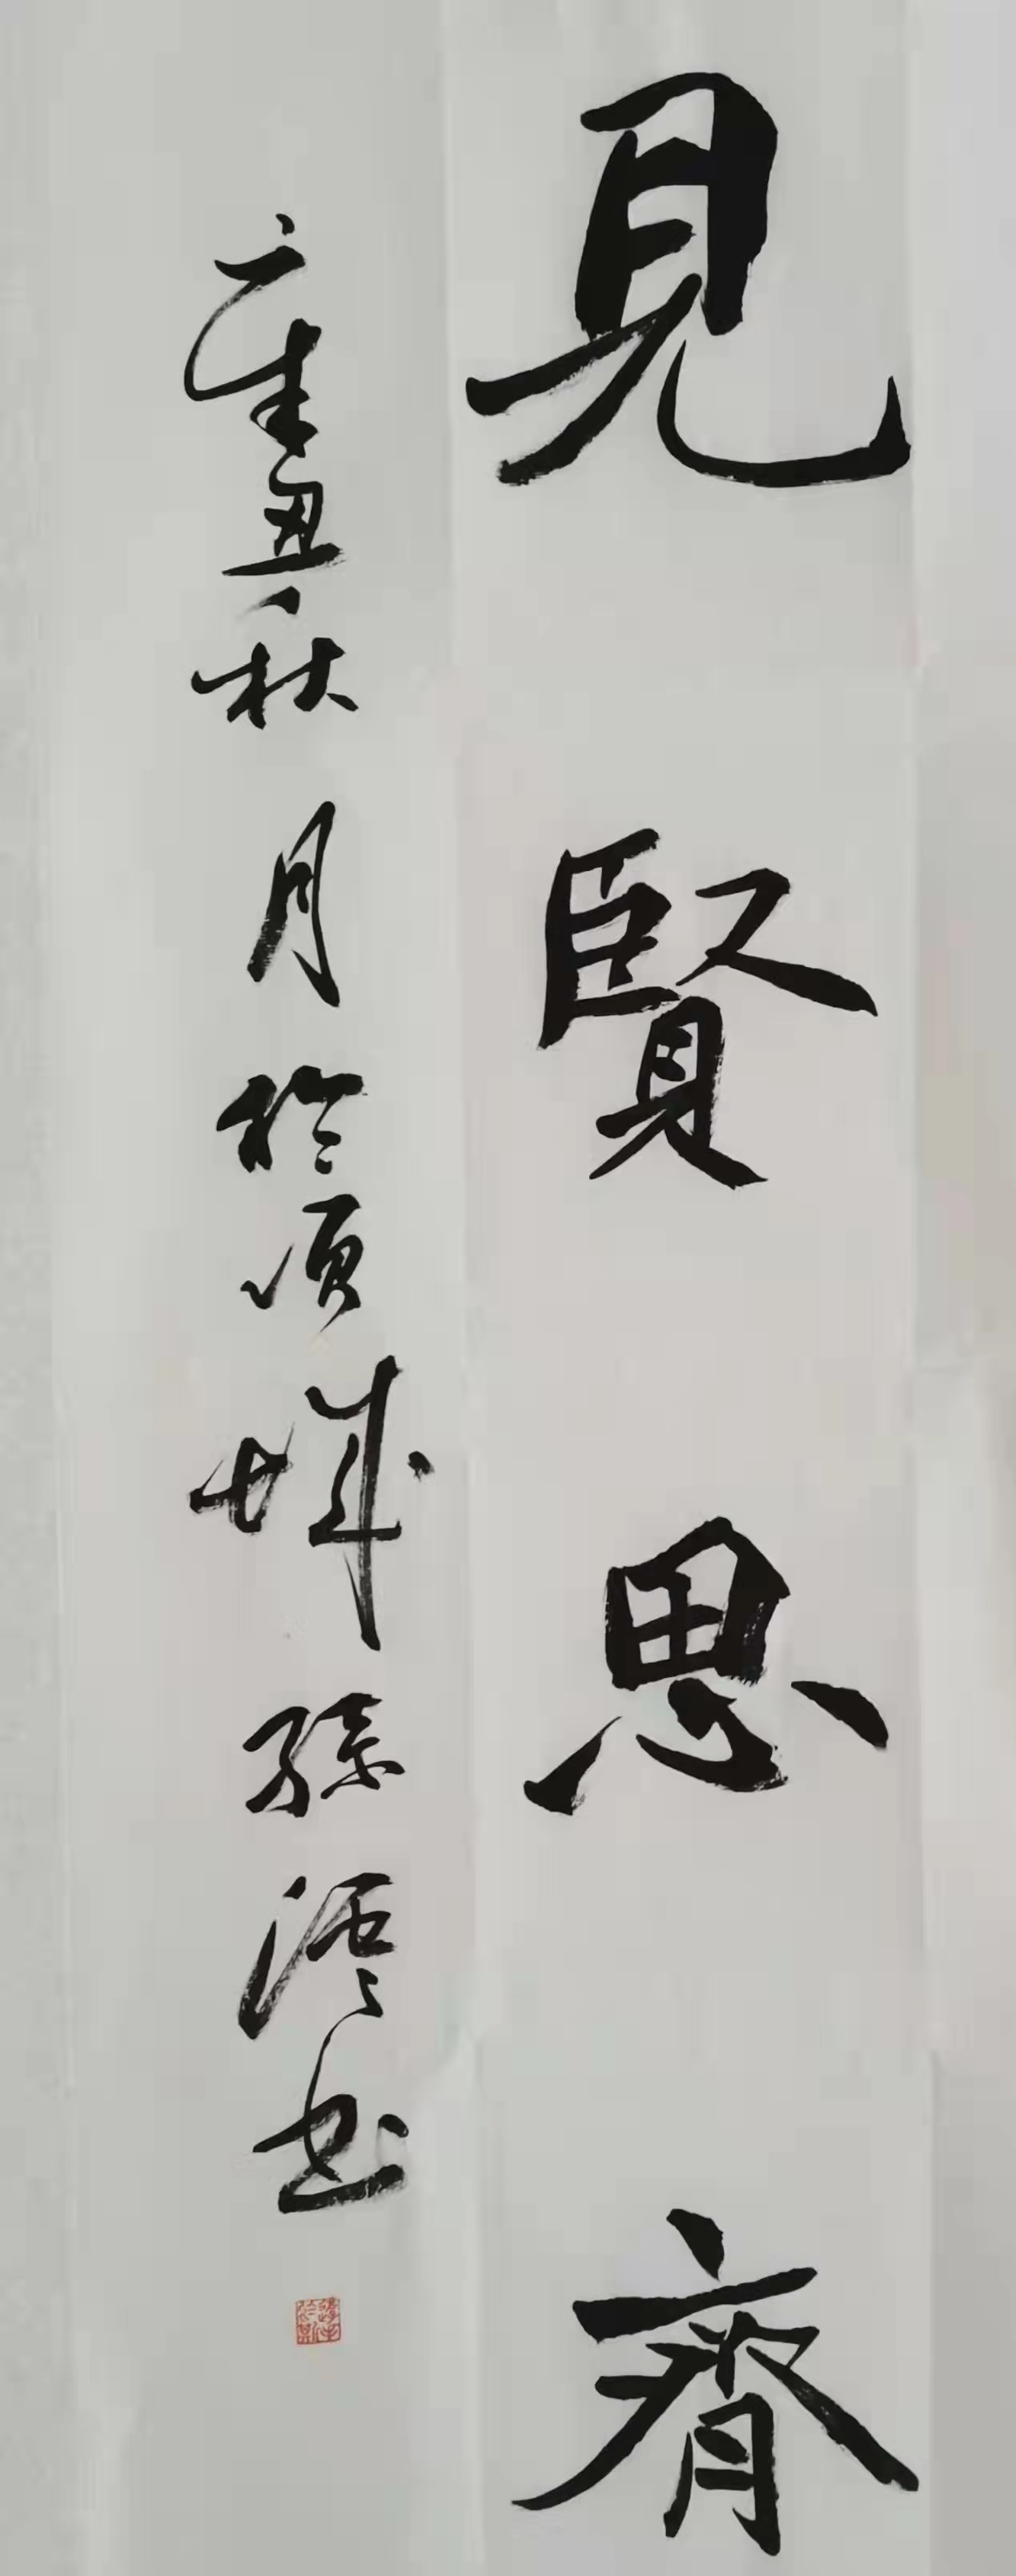 見賢思齊
辛丑秋月於项城孫澤書